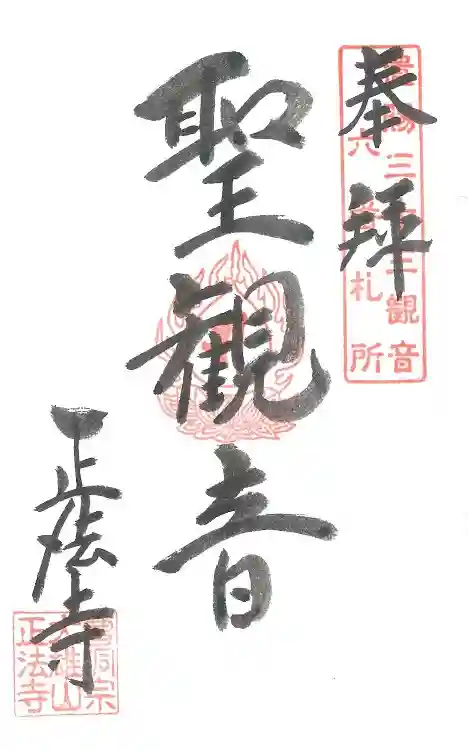 奉拝
三十三観音
六番札所
聖観音
正法寺
曹洞宗
大雄山
正法寺